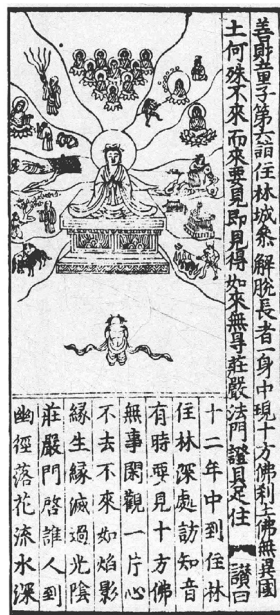 善財童子第六詣住林城叅解脫長者一身中現十方佛刹土佛無異國
土何殊不來而來要見即見得如來無㝵莊嚴法門證具足住　讚曰
十二年中到住林
住林深處訪知音
有時要見十方佛
無事閑觀一片心
不去不來如焰影
緣生緣滅過光陰
莊嚴門啓誰人到
幽徑落花流水深